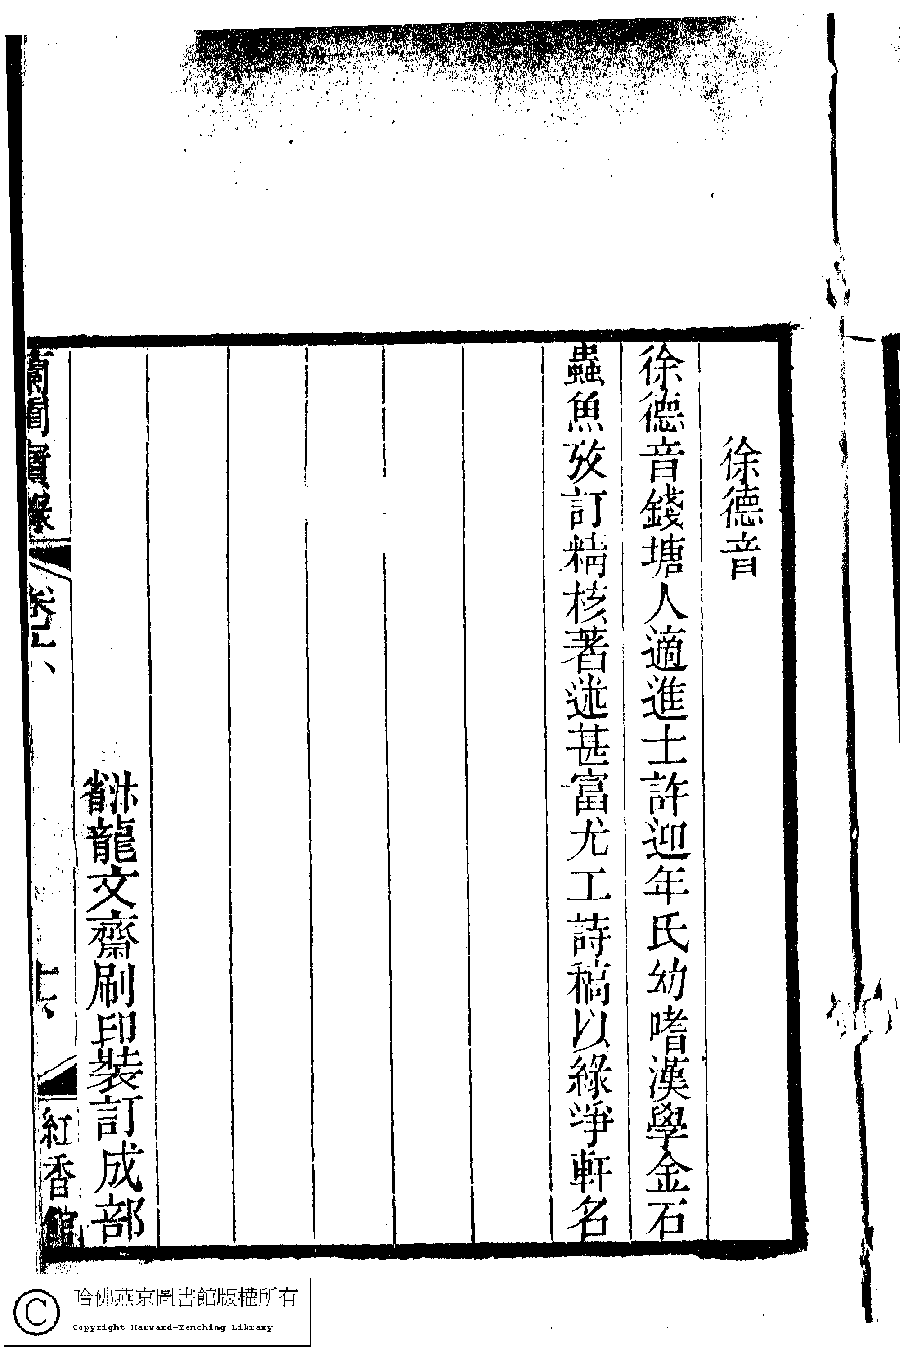 徐德音
徐德音錢塘人適進士許迎年氏幼嗜漢學金石
蟲魚攷訂精核著述甚富尤工詩稿以綠淨軒名
汴省龍文齋刷印裝訂成部
蘭閨寶錄
卷六
十六
紅香館
哈佛燕京圖書館版權所有
Copyright Harvard-Yenching Library